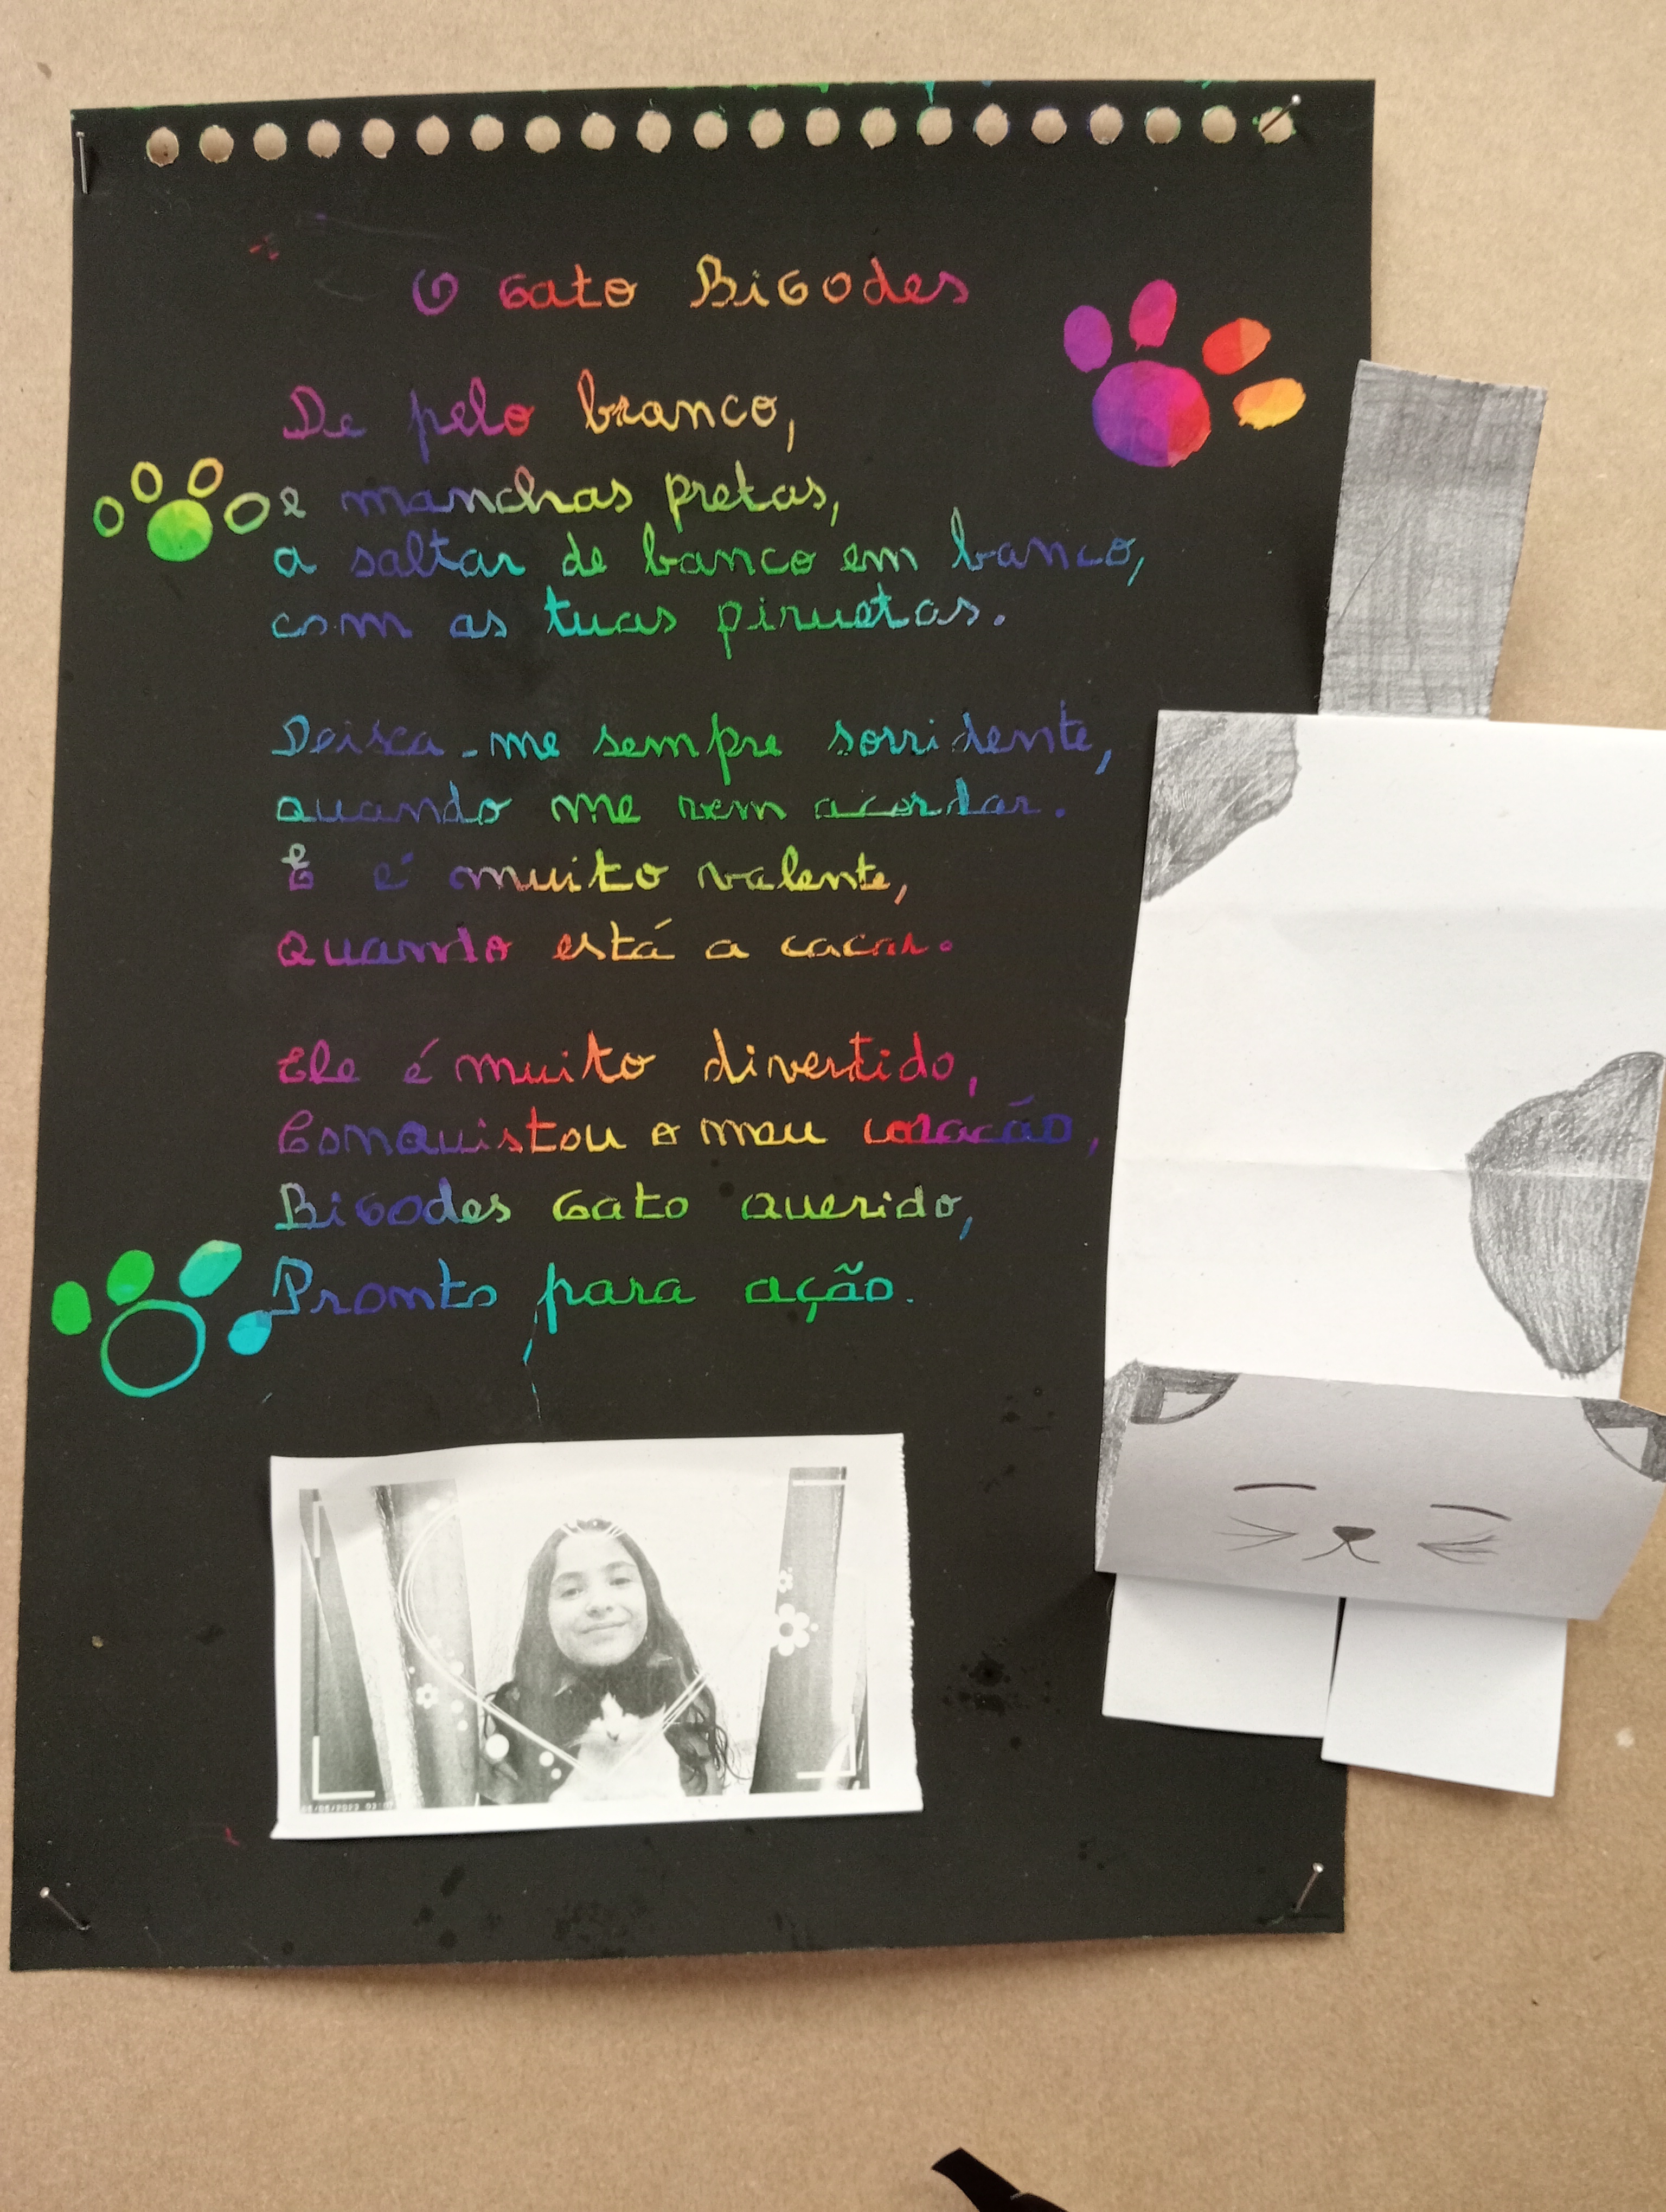 O Gato Bigodes
De pelo branco,
e manchas pretas,
a saltar de banco em banco,
com as tuas piruetas.
Deixa-me sempre sorridente,
quando me vem acordar.
E é muito valente,
Quando está a cacar.
Ele é muito divertido,
Conquistou o meu coracão,
Bigodes Gato querido,
Pronto para ação.